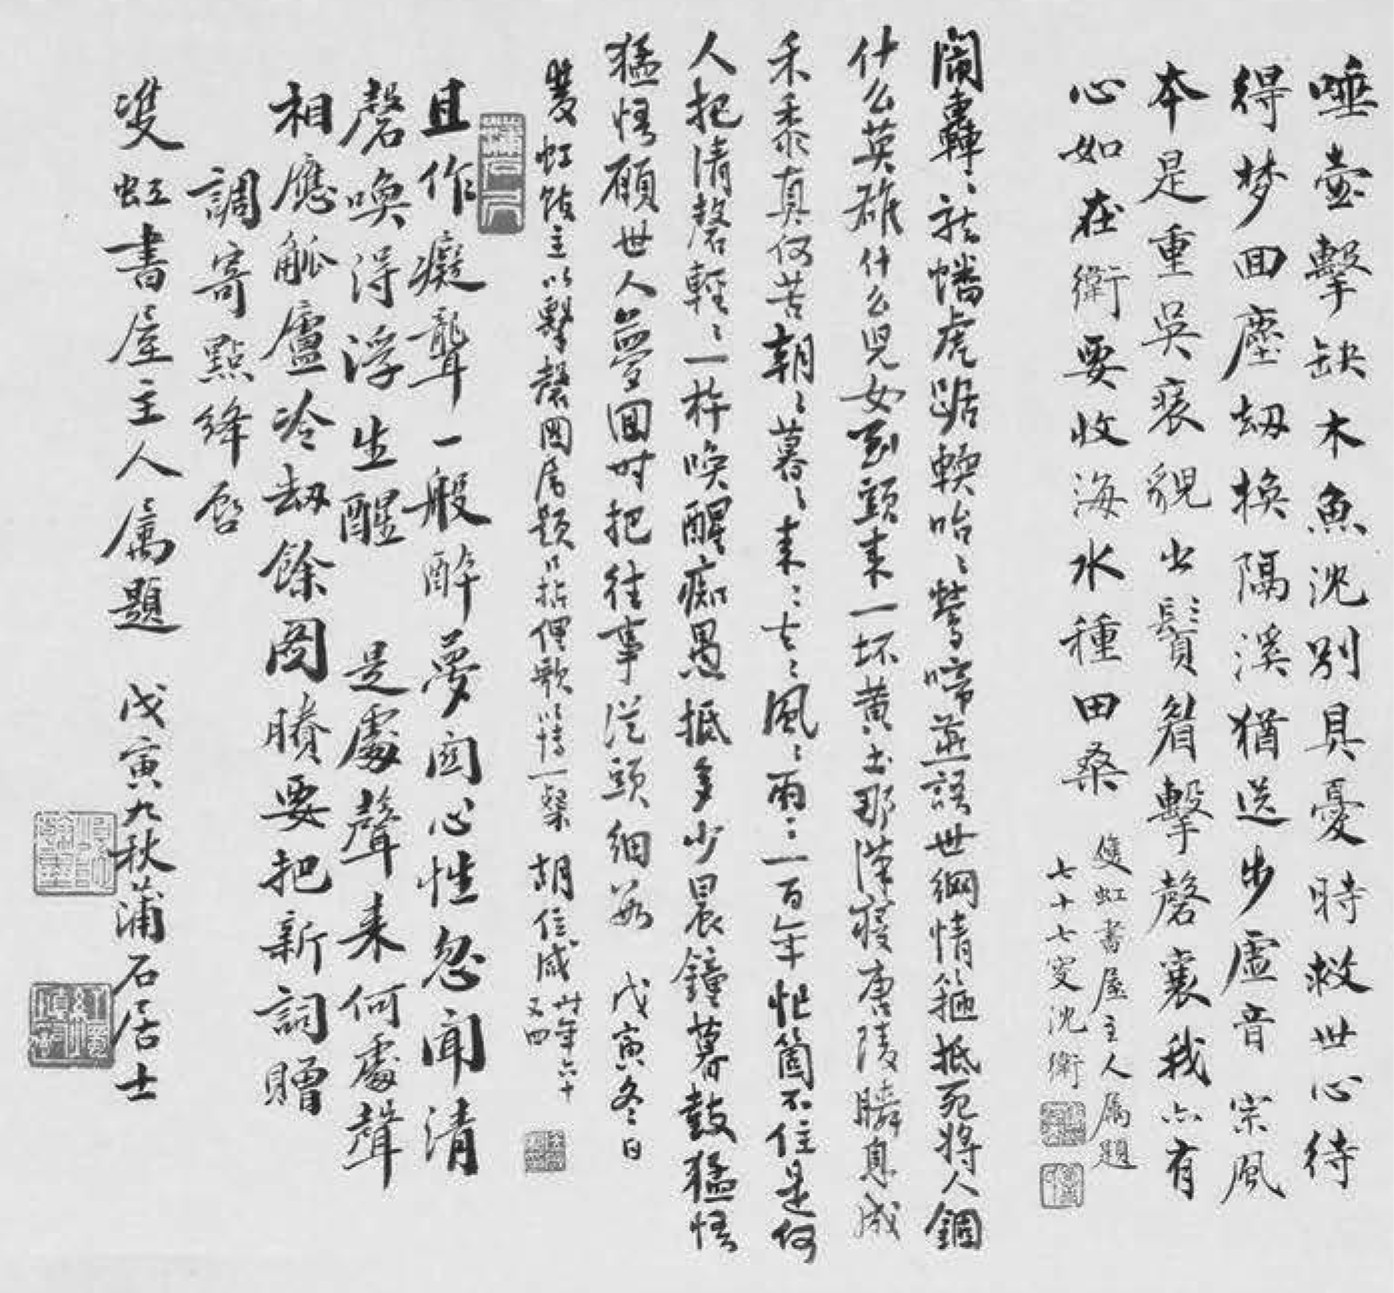 唾壺擊缺木魚沈別具憂時救世心待
得梦回塵劫換隔溪猶送步虛音宗風
本是重吳袞貌出鬚眉擊磬襄我亦有
心如在衛要收海水種田桑
雙虹書屋主人属題
七十七叟沈衛
鬧轟〻龍蟠虎踞輭咍〻鶯啼燕語世網情箍抵死將人錮
什么英雄什么児女到頭来一坏黄土那漢寢唐陵瞬息成
禾黍真何苦朝〻暮〻来〻去〻風〻雨〻一百年忙箇不住是何
人把清磬輕〻一杵喚醒痴愚抵多少晨鐘暮鼓猛悟
猛悟願世人夢回时把往事從頭细数 戊寅冬日
雙虹館主以擊磬圖属題口拈俚歌以博一粲 胡位咸 廿年六十
又四
且作癡聾一般醉夢図心性忽聞清
磬喚得浮生醒 是處聲来何處聲
相應觚廬冷劫餘圖賸要把新詞贈
調寄點絳唇
雙虹書屋主人属題 戊寅九秋蒲石居士